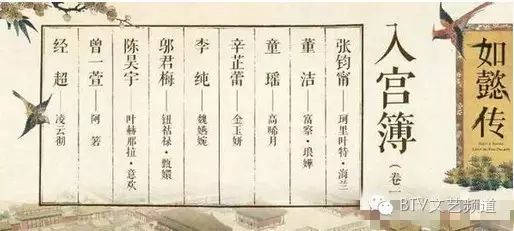 如懿传
入宫簿
(卷一)
张钧甯——珂里叶特·海兰
董洁——富察·琅嬅
童瑶——高晞月
辛芷蕾——金玉妍
李纯——魏嬿婉
邬君梅——钮祜禄·甄嬛
陈昊宇——叶赫那拉·意欢
曾一萱——阿箬
经超——凌云彻
BTV文艺频道